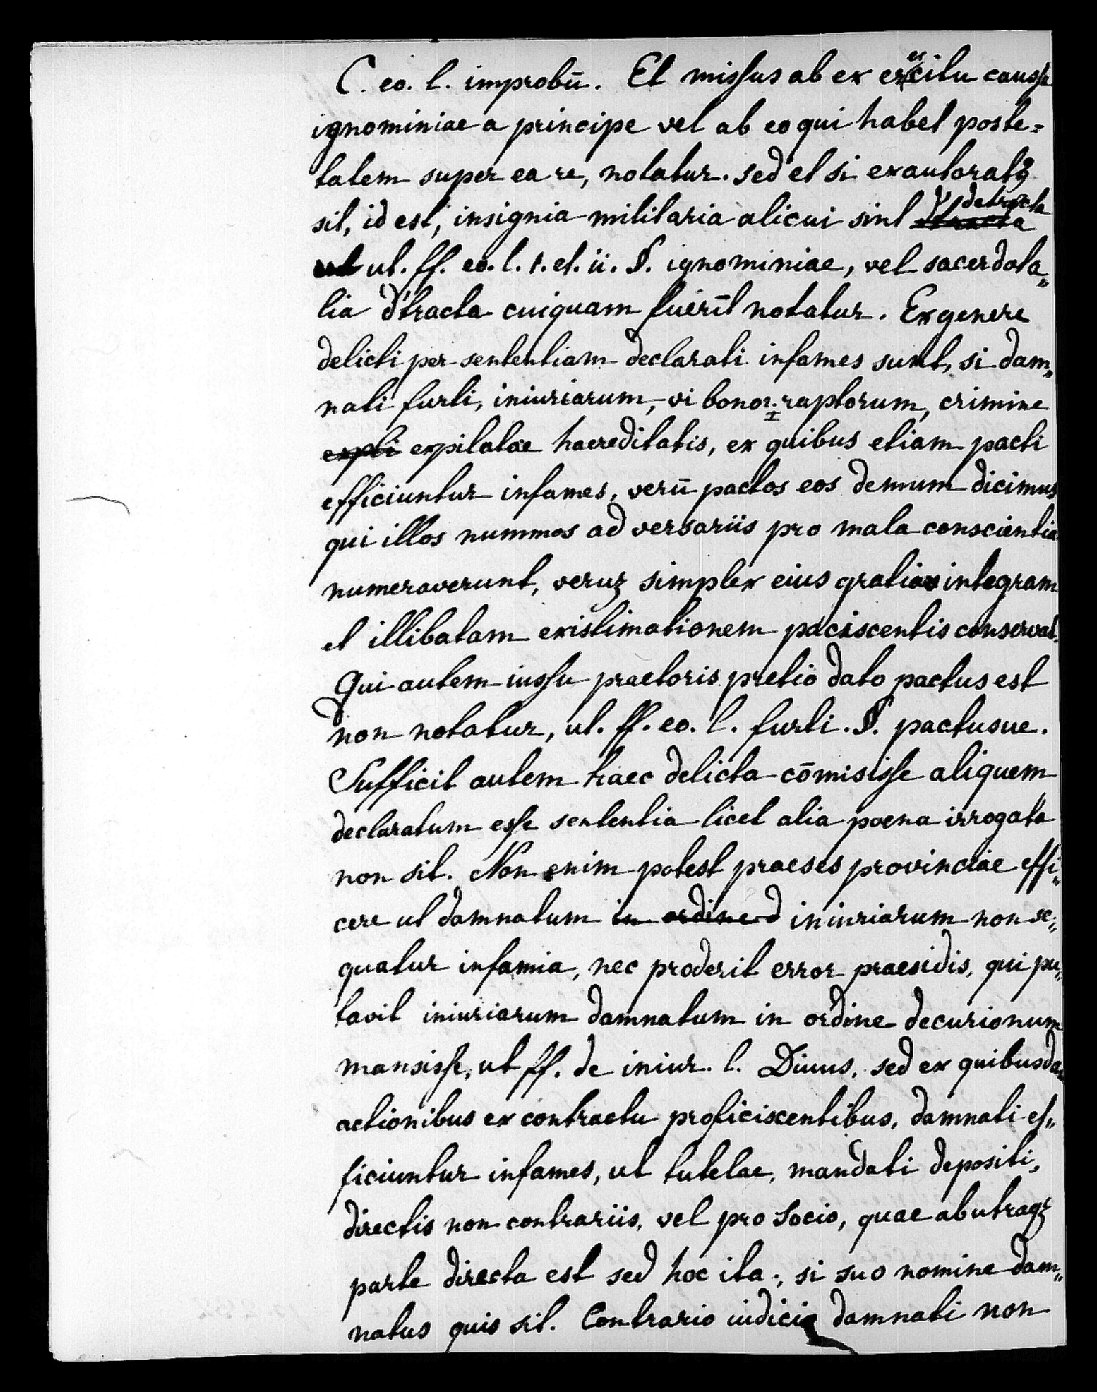 C. eo. l. improbū. Et missus ab ex ercitu causa
ignominiae a principe vel ab eo qui habet poste=
tatem super ea re, notatur. sed et si exautoratꝰ
sit, id est, insignia militaria alicui sint detracta
ut. ff. eo. l. 1. et. ii. §. ignominiae, vel sacerdota„
lia d'tracta cuiquam fuerīt notatur. Ex genere
delicti per sententiam declarati infames sunt, si dam„
nati furti, iniuriarum, vi bonor. raptorum, crimine
expli expilatae haereditatis, ex quibus etiam pacti
efficiuntur infames, verū pactos eos demum dicimus
qui illos nummos adversariis pro mala conscientia
numeraverunt, veruꝫ simplex eius gratia integram
et illibatam existimationem paciscentis conservat.
Qui autem iussu praetoris pretio dato pactus est
non notatur, ut. ff. eo. l. furti. §. pactusue.
Sufficit autem haec delicta cōmisisse aliquem
declaratum esse sententia licet alia poena irrogata
non sit. Non enim potest praeses provinciae effi„
cere ut damnatum in ordine d iniuriarum non se„
quatur infamia, nec proderit error praesidis, qui pu„
tavit iniuriarum damnatum in ordine decurionum
mansisse, ut ff. de iniur. l. Diuus, sed ex quibusda
actionibus ex contractu proficiscentibus, damnati ef„
ficiuntur infames, ut tutelae, mandati depositi,
directis non contrariis, vel pro socio, quae ab utraqꝫ
parte directa est sed hoc ita, si suo nomine dam„
natus quis sit. Contrario iudicio damnati non